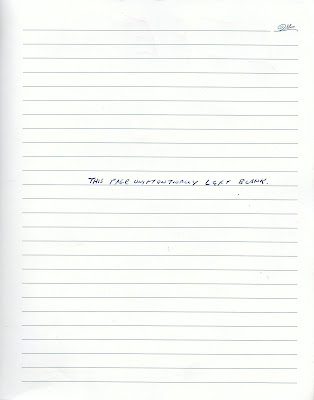 THIS PAGE UNINTENTIONALLY LEFT BLANK.